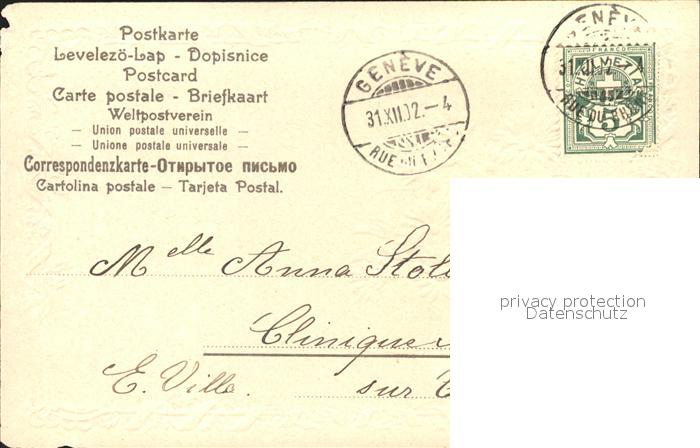 Postkarte
Levelező-Lap - Dopisnice
Postcard
Carte postale - Briefkaart
Weltpostverein
— Union postale universelle —
— Unione postale universale —
Correspondenzkarte-Открытое письмо
Cartolina postale — Tarjeta Postal.
GENÈVE
31.XII.02.—4
RUE DU
GENÈVE
31.XII.
RUE DU
FRANCO
HELVETIA
5
Mlle Anna
Clinique
E. Ville. sur
privacy protection
Datenschutz